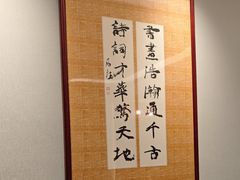 書畫浩瀚通千古
詩詞才華驚天地